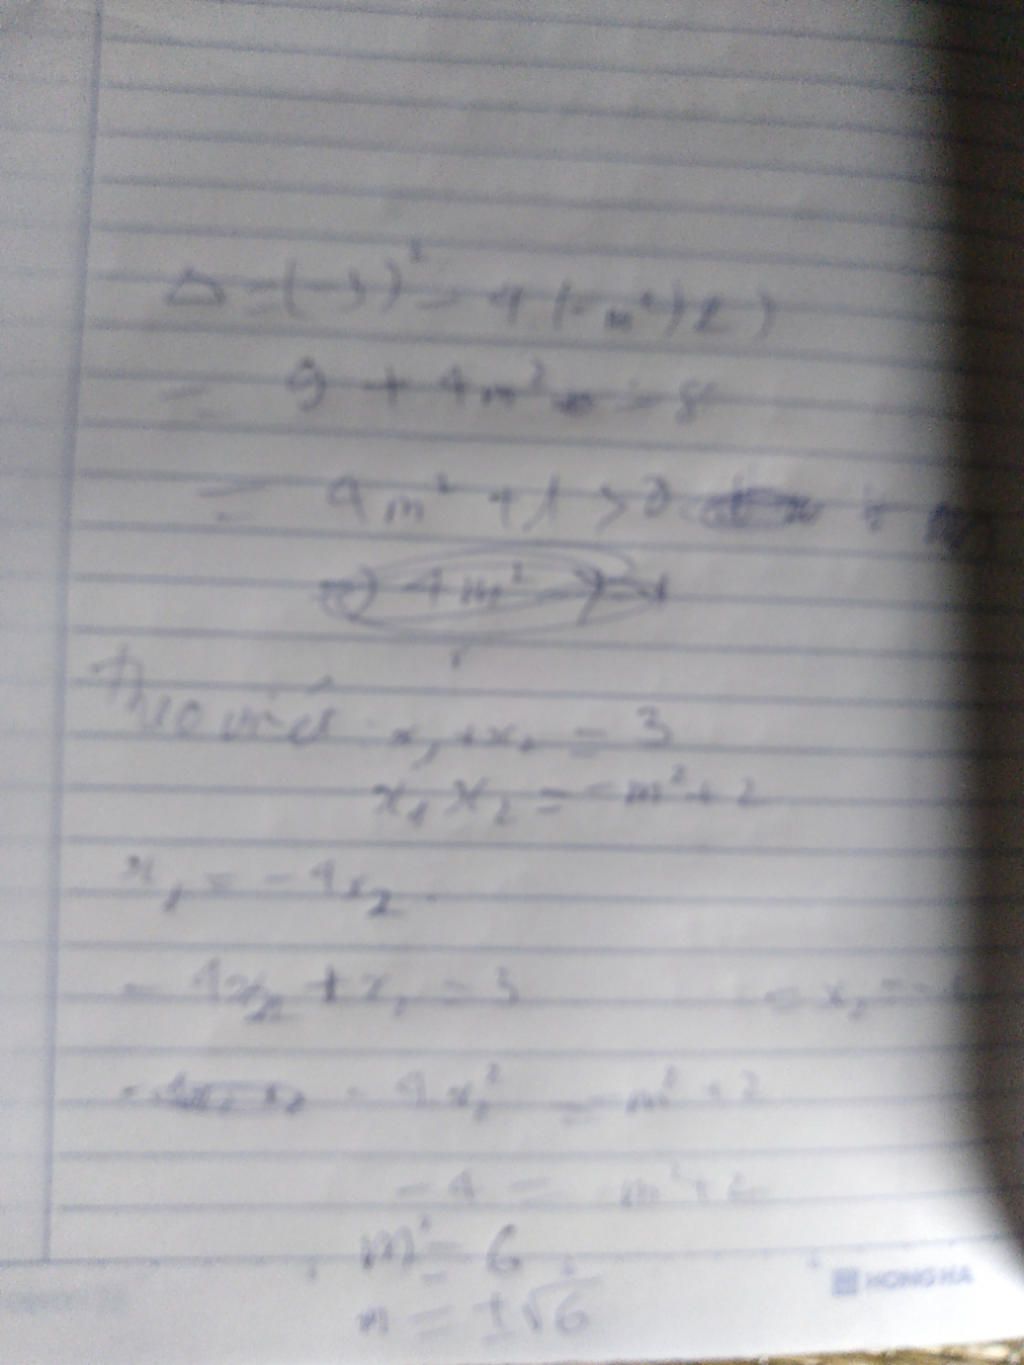 Δ = (-3)² - 4(-m²+2)
= 9 + 4m² - 8
= 4m² + 1 > 0 ∀ m
=> 4m² > -1
Theo viét: x₁ + x₂ = 3
x₁ x₂ = -m² + 2
x₁ = -4x₂
- 4x₂ + x₂ = 3 = x₂ = -1
- 4x₂² = -m² + 2
-4 = -m² + 2
m² = 6
m = ±√6
HONG HA